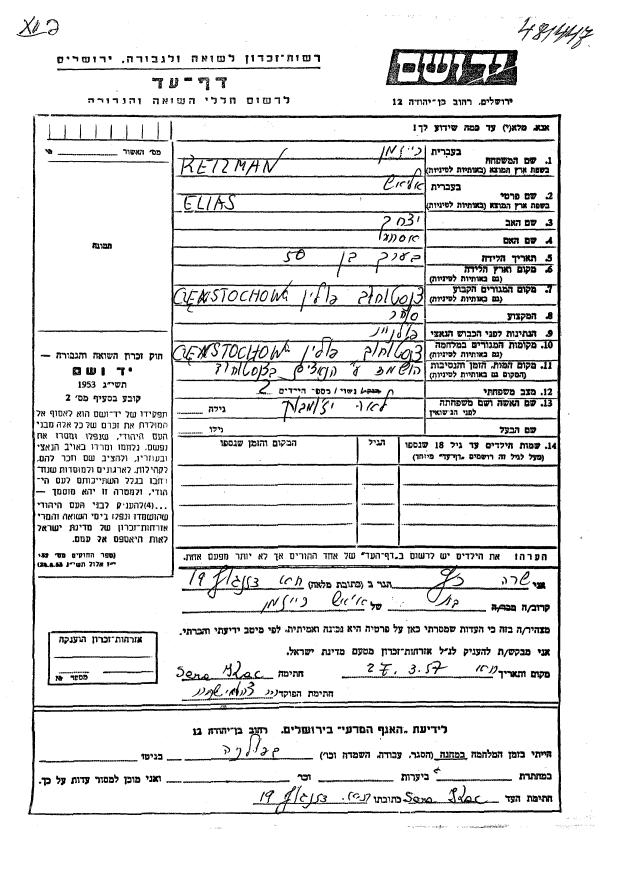 XII 2
יד ושם
ירושלים, רחוב בן-יהודה 12
רשות-זכרון לשואה ולגבורה, ירושלים
דף-עד
לרשום חללי השואה והגבורה
אנא, מלא(י) עד כמה שידוע לך!
מס' האשור
תמונה
1. שם המשפחה
בעברית
בשפת ארץ המוצא (באותיות לטיניות)
רייזמן
REIZMAN
2. שם פרטי
בעברית
בשפת ארץ המוצא (באותיות לטיניות)
אליאש
ELIAS
3. שם האב
יצחק
4. שם האם
אסתר
5. תאריך הלידה
בערך בן 50
6. מקום וארץ הלידה
(גם באותיות לטיניות)
7. מקום המגורים הקבוע
(גם באותיות לטיניות)
צ'נסטוחוב פולין CZENSTOCHOWA
8. המקצוע
סוחר
9. הנתינות לפני הכבוש הנאצי
פולנית
10. מקומות המגורים במלחמה
(גם באותיות לטיניות)
צ'נסטוחוב פולין CZENSTOCHOWA
11. מקום המות, הזמן והנסיבות
(המקום גם באותיות לטיניות)
הושמד ע"י הנאצים בצ'נסטוחוב
12. מצב משפחתי
נשוי / מספר הילדים 2
13. שם האשה ושם משפחתה
לפני הנשואין
לאה
גילה
שם הבעל
גילו
14. שמות הילדים עד גיל 18 שנספו
(מעל לגיל זה רושמים "דף-עד" מיוחד)
הגיל
המקום והזמן שנספו
חוק זכרון השואה והגבורה —
יד ושם
תשי"ג 1953
קובע בסעיף מס' 2
תפקידו של יד-ושם הוא לאסוף אל
המולדת את זכרם של כל אלה מבני
העם היהודי, שנפלו ומסרו את
נפשם, נלחמו ומרדו באויב הנאצי
ובעוזריו, ולהציב שם וזכר להם,
לקהילות, לארגונים ולמוסדות שנח־
רבו בגלל השתייכותם לעם הי־
הודי, ולמטרה זו יהא מוסמך —
...(4) להעניק לבני העם היהודי
שהושמדו ונפלו בימי השואה והמרי
אזרחות-זכרון של מדינת ישראל
לאות היאספם אל עמם.
(ספר החוקים מס' 132
י"ז אלול תשי"ג 28.8.53)
הערה: את הילדים יש לרשום ב"דף-העד" של אחד ההורים אך לא יותר מפעם אחת.
אני שרה כץ הגר ב (כתובת מלאה) 19
קרוב/ה בת של אליאש רייזמן
מצהיר/ה בזה כי העדות שמסרתי כאן על פרטיה היא נכונה ואמיתית, לפי מיטב ידיעתי והכרתי.
אני מבקש/ת להעניק לנ"ל אזרחות-זכרון מטעם מדינת ישראל.
מקום ותאריך 3.57 חתימה
חתימת הפוקד
אזרחות-זכרון הוענקה
מספר №
לידיעת "האגף המדעי" בירושלים, רחוב בן-יהודה 12
הייתי בזמן המלחמה במחנה (הסגר, עבודה, השמדה וכו') בגיטו
במחתרת ביערות וכו' ואני מוכן למסור עדות על כך.
חתימת העד כתובתו 19